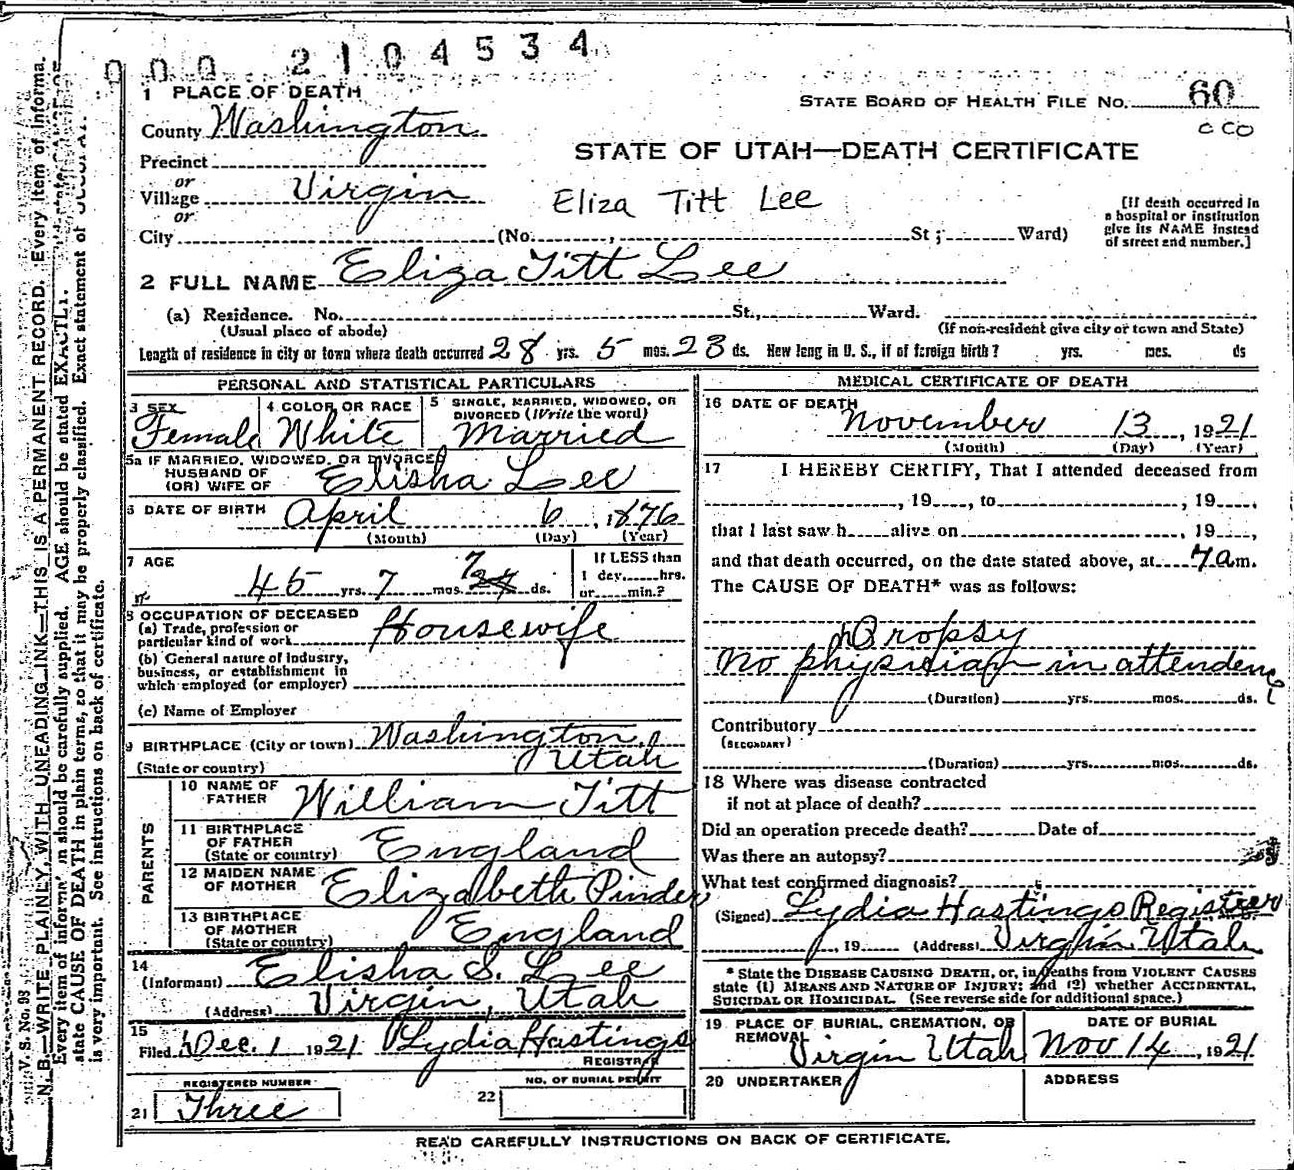 000 2104534
1 PLACE OF DEATH
STATE BOARD OF HEALTH FILE NO. 60
County Washington
Precinct
STATE OF UTAH—DEATH CERTIFICATE
or
Village Virgin
Eliza Titt Lee
or
City (No. , St; Ward)
[If death occurred in
a hospital or institution
give its NAME instead
of street and number.]
2 FULL NAME Eliza Titt Lee
(a) Residence. No. St., Ward.
(Usual place of abode) (If non-resident give city or town and State)
Length of residence in city or town where death occurred 28 yrs. 5 mos. 23 ds. How long in U. S., if of foreign birth? yrs. mos. ds
PERSONAL AND STATISTICAL PARTICULARS
3 SEX Female
4 COLOR OR RACE White
5 SINGLE, MARRIED, WIDOWED, OR
DIVORCED (Write the word)
Married
5a IF MARRIED, WIDOWED, OR DIVORCED
HUSBAND OF
(OR) WIFE OF Elisha Lee
6 DATE OF BIRTH April 6, 1876
(Month) (Day) (Year)
7 AGE
45 yrs. 7 mos. 7 ds.
If LESS than
1 day hrs.
or min.?
8 OCCUPATION OF DECEASED
(a) Trade, profession or
particular kind of work Housewife
(b) General nature of industry,
business, or establishment in
which employed (or employer)
(c) Name of Employer
9 BIRTHPLACE (City or town) Washington,
(State or country) Utah
PARENTS
10 NAME OF
FATHER William Titt
11 BIRTHPLACE
OF FATHER
(State or country) England
12 MAIDEN NAME
OF MOTHER Elizabeth Pinder
13 BIRTHPLACE
OF MOTHER
(State or country) England
14
(Informant) Elisha S. Lee
(Address) Virgin, Utah
15
Filed Dec. 1 1921 Lydia Hastings
REGISTRAR
REGISTERED NUMBER
21 Three
NO. OF BURIAL PERMIT
22
MEDICAL CERTIFICATE OF DEATH
16 DATE OF DEATH
November 13, 1921
(Month) (Day) (Year)
17 I HEREBY CERTIFY, That I attended deceased from
, 19 , to , 19 ,
that I last saw h alive on , 19 ,
and that death occurred, on the date stated above, at 7 a m.
The CAUSE OF DEATH* was as follows:
Dropsy
No physician in attendence
(Duration) yrs. mos. ds.
Contributory
(SECONDARY)
(Duration) yrs. mos. ds.
18 Where was disease contracted
if not at place of death?
Did an operation precede death? Date of
Was there an autopsy?
What test confirmed diagnosis?
(Signed) Lydia Hastings Registrer
, 19 (Address) Virgin Utah
* State the DISEASE CAUSING DEATH, or, in deaths from VIOLENT CAUSES
state (1) MEANS AND NATURE OF INJURY; and (2) whether ACCIDENTAL,
SUICIDAL OR HOMICIDAL. (See reverse side for additional space.)
19 PLACE OF BURIAL, CREMATION, OR
REMOVAL
Virgin Utah
DATE OF BURIAL
Nov 14, 1921
20 UNDERTAKER
ADDRESS
READ CAREFULLY INSTRUCTIONS ON BACK OF CERTIFICATE.
V. S. No. 93
N. B.—WRITE PLAINLY, WITH UNFADING INK—THIS IS A PERMANENT RECORD. Every item of informa-
Every item of should be carefully supplied. AGE should be stated EXACTLY.
state CAUSE OF DEATH in plain terms, so that it may be properly classified. Exact statement of
is very important. See instructions on back of certificate.